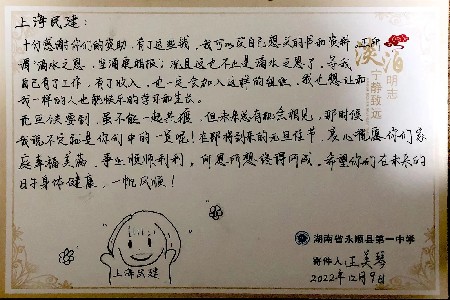 上海民建：
十分感谢你们的资助，有了这些钱，我可以买自己想买的书和资料，正所
谓"滴水之恩，当涌泉相报"；况且这也不止是滴水之恩了，等我
自己有了工作，有了收入，也一定会加入这样的组织，我也想让和
我一样的人也能快乐的学习和生长。
元旦快要到，虽不能一起共度，但未来总有机会相见，那时候
我说不定就是你们中的一员呢！在即将到来的元旦佳节，衷心祝愿你们家
庭幸福美满，事业顺顺利利，所愿所想终得所成。希望你们在未来的
日子身体健康，一帆风顺！
淡泊明志
宁静致远
上海民建
湖南省永顺县第一中学
寄件人：王美琴
2022年12月9日